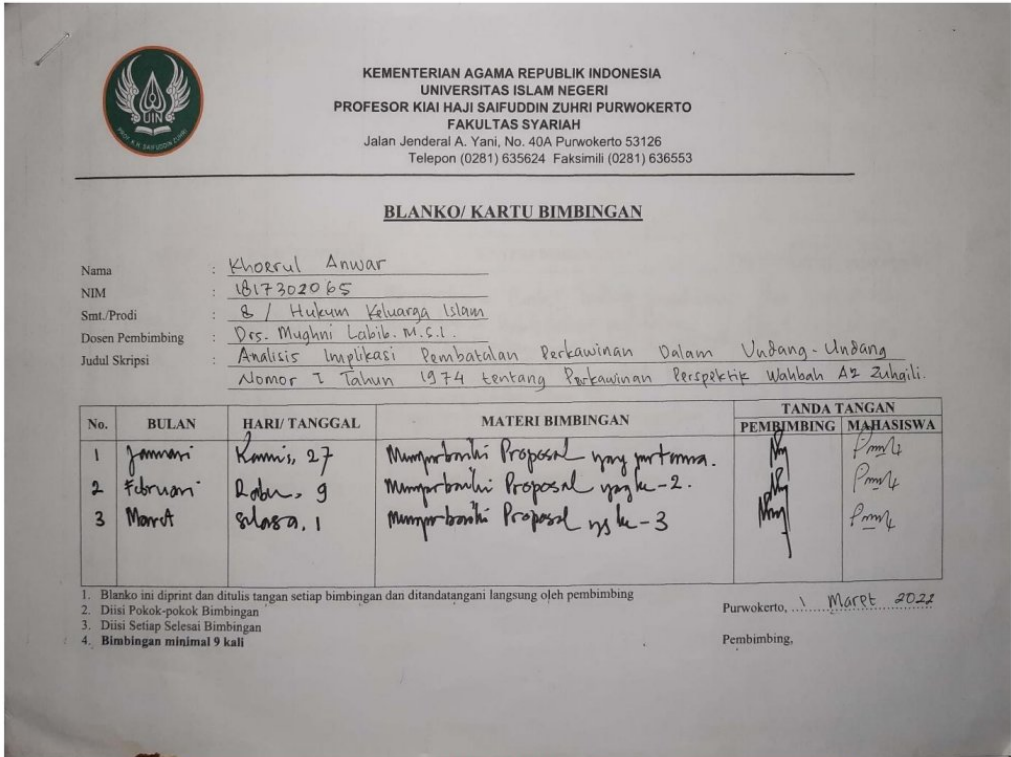 UIN
PROF. K.H. SAIFUDDIN ZUHRI
KEMENTERIAN AGAMA REPUBLIK INDONESIA
UNIVERSITAS ISLAM NEGERI
PROFESOR KIAI HAJI SAIFUDDIN ZUHRI PURWOKERTO
FAKULTAS SYARIAH
Jalan Jenderal A. Yani, No. 40A Purwokerto 53126
Telepon (0281) 635624 Faksimili (0281) 636553
BLANKO/ KARTU BIMBINGAN
Nama : Khoerul Anwar
NIM : 1817302065
Smt./Prodi : 8 / Hukum Keluarga Islam
Dosen Pembimbing : Drs. Mughni Labib. M.S.I.
Judul Skripsi : Analisis Implikasi Pembatalan Perkawinan Dalam Undang-Undang
Nomor I Tahun 1974 tentang Perkawinan Perspektif Wahbah Az Zuhaili.
No. BULAN HARI/ TANGGAL MATERI BIMBINGAN TANDA TANGAN
PEMBIMBING MAHASISWA
1 Januari Kamis, 27 Memperbaiki Proposal yang pertama.
2 Februari Rabu, 9 Memperbaiki Proposal yang ke-2.
3 Maret Selasa, 1 Memperbaiki Proposal yg ke-3
1. Blanko ini diprint dan ditulis tangan setiap bimbingan dan ditandatangani langsung oleh pembimbing
2. Diisi Pokok-pokok Bimbingan
3. Diisi Setiap Selesai Bimbingan
4. Bimbingan minimal 9 kali
Purwokerto, 1 Maret 2022
Pembimbing,